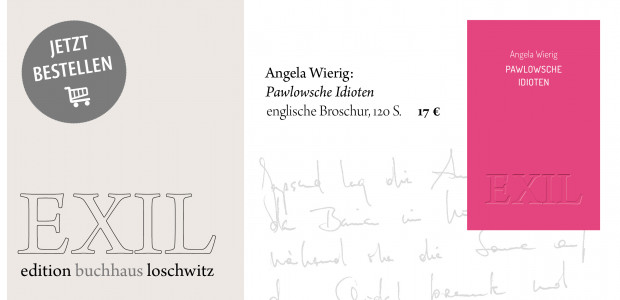 JETZT
BESTELLEN
EXIL
edition buchhaus loschwitz
Angela Wierig:
Pawlowsche Idioten
englische Broschur, 120 S. 17 €
Angela Wierig
PAWLOWSCHE
IDIOTEN
EXIL
die
in
die Sonne auf
und